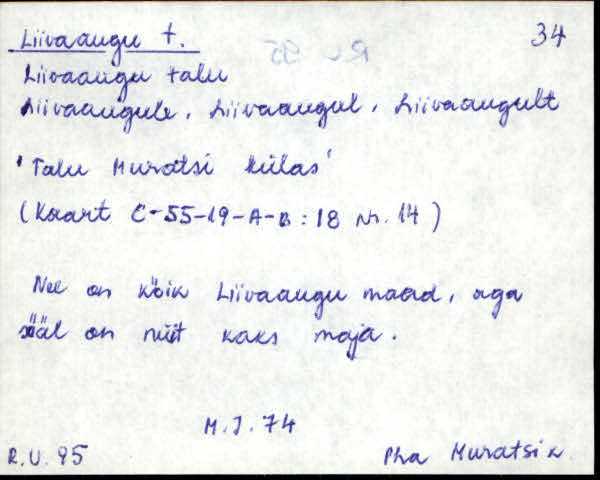 Liivaaugu t. 34
Liivaaugu talu
Liivaaugule, Liivaaugul, Liivaaugult
'Talu Muratsi külas'
(Kaart C-55-19-A-B : 18 Nr. 14)
Nee on kõik Liivaaugu maad, aga
sääl on nüit kaks maja.
M.J.74
R.U.95 Pha Muratsi k